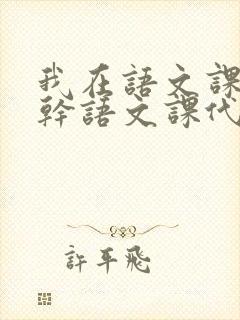 我在語文課
幹語文課代
許平飛